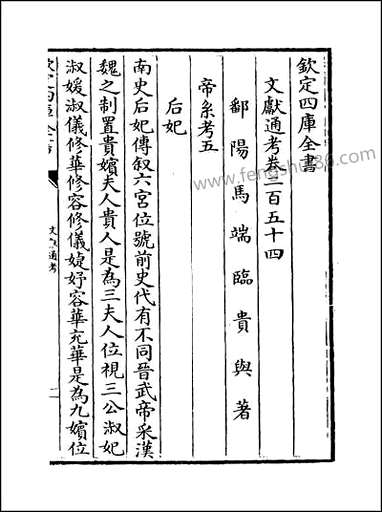 欽定四庫全書
文獻通考卷二百五十四
鄱陽馬端臨貴與著
帝系考五
后妃
南史后妃傳叙六宮位號前史代有不同晉武帝采漢
魏之制置貴嬪夫人貴人是為三夫人位視三公淑妃
淑媛淑儀修華修容修儀婕妤容華充華是為九嬪位
文獻通考
一